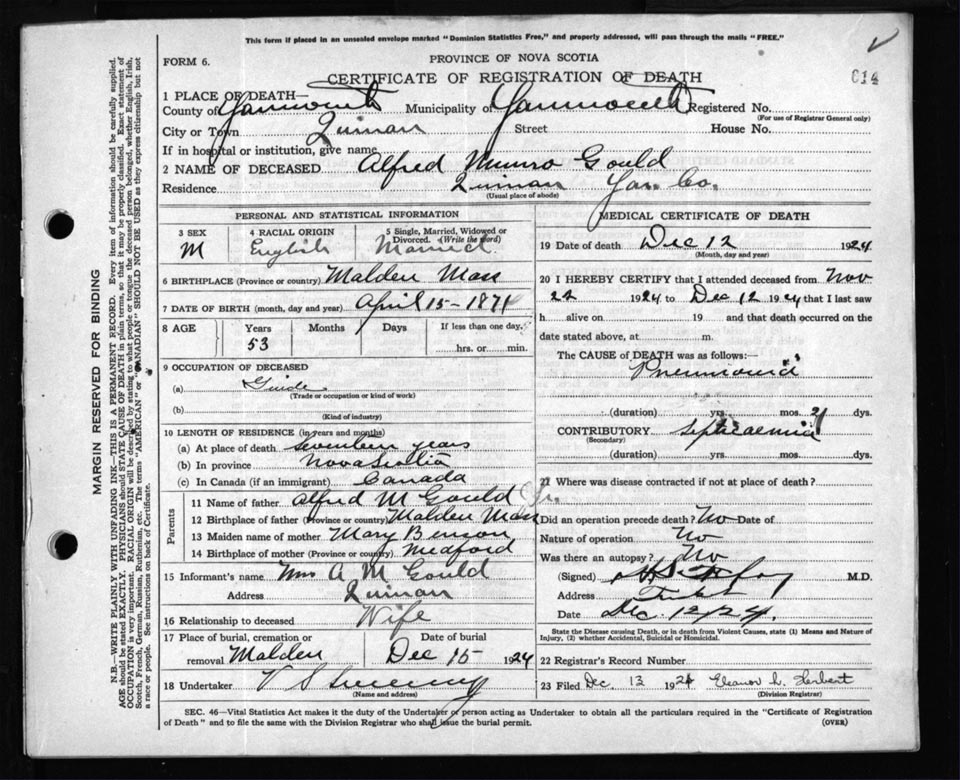 This form if placed in an unsealed envelope marked "Dominion Statistics Free," and properly addressed, will pass through the mails "FREE."
FORM 6.
PROVINCE OF NOVA SCOTIA
CERTIFICATE OF REGISTRATION OF DEATH
014
1 PLACE OF DEATH—
County of Yarmouth Municipality of Yarmouth Registered No.
(For use of Registrar General only)
City or Town Quinan Street House No.
If in hospital or institution, give name
2 NAME OF DECEASED Alfred Munro Gould
Residence Quinan Yar. Co.
(Usual place of abode)
PERSONAL AND STATISTICAL INFORMATION
3 SEX M
4 RACIAL ORIGIN English
5 Single, Married, Widowed or Divorced. (Write the word) Married
6 BIRTHPLACE (Province or country) Malden Mass
7 DATE OF BIRTH (month, day and year) April 15 - 1871
8 AGE Years Months Days If less than one day,
53 hrs. or min.
9 OCCUPATION OF DECEASED
(a) Guide
(Trade or occupation or kind of work)
(b)
(Kind of industry)
10 LENGTH OF RESIDENCE (in years and months)
(a) At place of death seventeen years
(b) In province Nova Scotia
(c) In Canada (if an immigrant) Canada
Parents
11 Name of father Alfred M Gould Jr.
12 Birthplace of father (Province or country) Malden Mass
13 Maiden name of mother Mary Benson
14 Birthplace of mother (Province or country) Medford
15 Informant's name Mrs A M Gould
Address Quinan
16 Relationship to deceased Wife
17 Place of burial, cremation or removal Malden
Date of burial Dec 15 1924
18 Undertaker V S Sweeny
(Name and address)
MEDICAL CERTIFICATE OF DEATH
19 Date of death Dec 12 1924
(Month, day and year)
20 I HEREBY CERTIFY that I attended deceased from Nov
22 1924 to Dec 12 1924 that I last saw
h alive on 19 and that death occurred on the
date stated above, at m.
The CAUSE of DEATH was as follows:
Pneumonia
(duration) yrs. mos. 21 dys.
CONTRIBUTORY Septicaemia
(Secondary)
(duration) yrs. mos. dys.
21 Where was disease contracted if not at place of death?
Did an operation precede death? No Date of
Nature of operation No
Was there an autopsy? No
(Signed) M.D.
Address
Date Dec. 12/24.
State the Disease causing Death, or in death from Violent Causes, state (1) Means and Nature of
Injury, (2) whether Accidental, Suicidal or Homicidal.
22 Registrar's Record Number
23 Filed Dec. 13 1924 Eleanor
(Division Registrar)
SEC. 46—Vital Statistics Act makes it the duty of the Undertaker or person acting as Undertaker to obtain all the particulars required in the "Certificate of Registration
of Death" and to file the same with the Division Registrar who shall issue the burial permit.
(OVER)
MARGIN RESERVED FOR BINDING
N.B.—WRITE PLAINLY WITH UNFADING INK—THIS IS A PERMANENT RECORD. Every item of information should be carefully supplied.
AGE should be stated EXACTLY. PHYSICIANS should STATE CAUSE OF DEATH in plain terms, so that it may be properly classified. Exact statement of
OCCUPATION is very important. RACIAL ORIGIN will be described by stating to what people or tongue the deceased person belonged, whether English, Irish,
Scotch, French, German, Russian, Ruthenian, etc. The terms "AMERICAN" or "CANADIAN" SHOULD NOT BE USED as they express citizenship but not
a race or people. See instructions on back of Certificate.